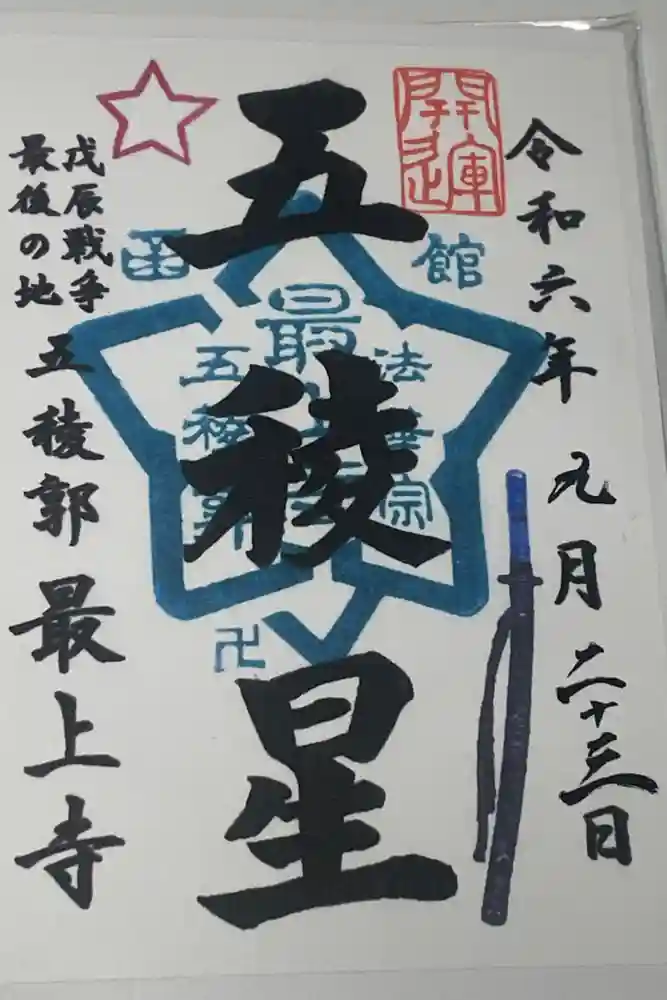 令和六年 九月 二十三日
開運
五稜星
函館
法華宗
最上寺
五稜郭
卍
戊辰戦争
最後の地
五稜郭 最上寺